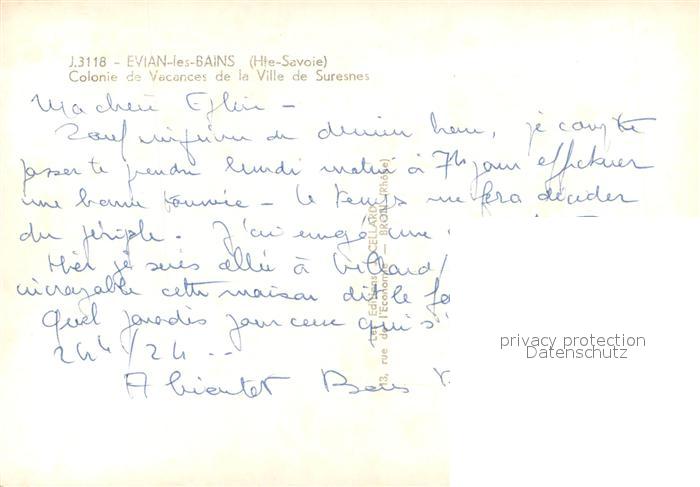 J.3118 - EVIAN-les-BAINS (Hte-Savoie)
Colonie de Vacances de la Ville de Suresnes
Ma chère
Sauf de dernière heure, je compte
passer te prendre lundi matin à 7h pour effectuer
une bonne tournée - le temps me fera décider
du périple. J'ai une
Hier je suis allée à Villard/
incroyable cette maison dit le
Quel paradis pour ceux qui s'
24h/24 ..
A bientot Bons
Les Editions CELLARD
13, rue de l'Economie - BRON (Rhône)
privacy protection
Datenschutz